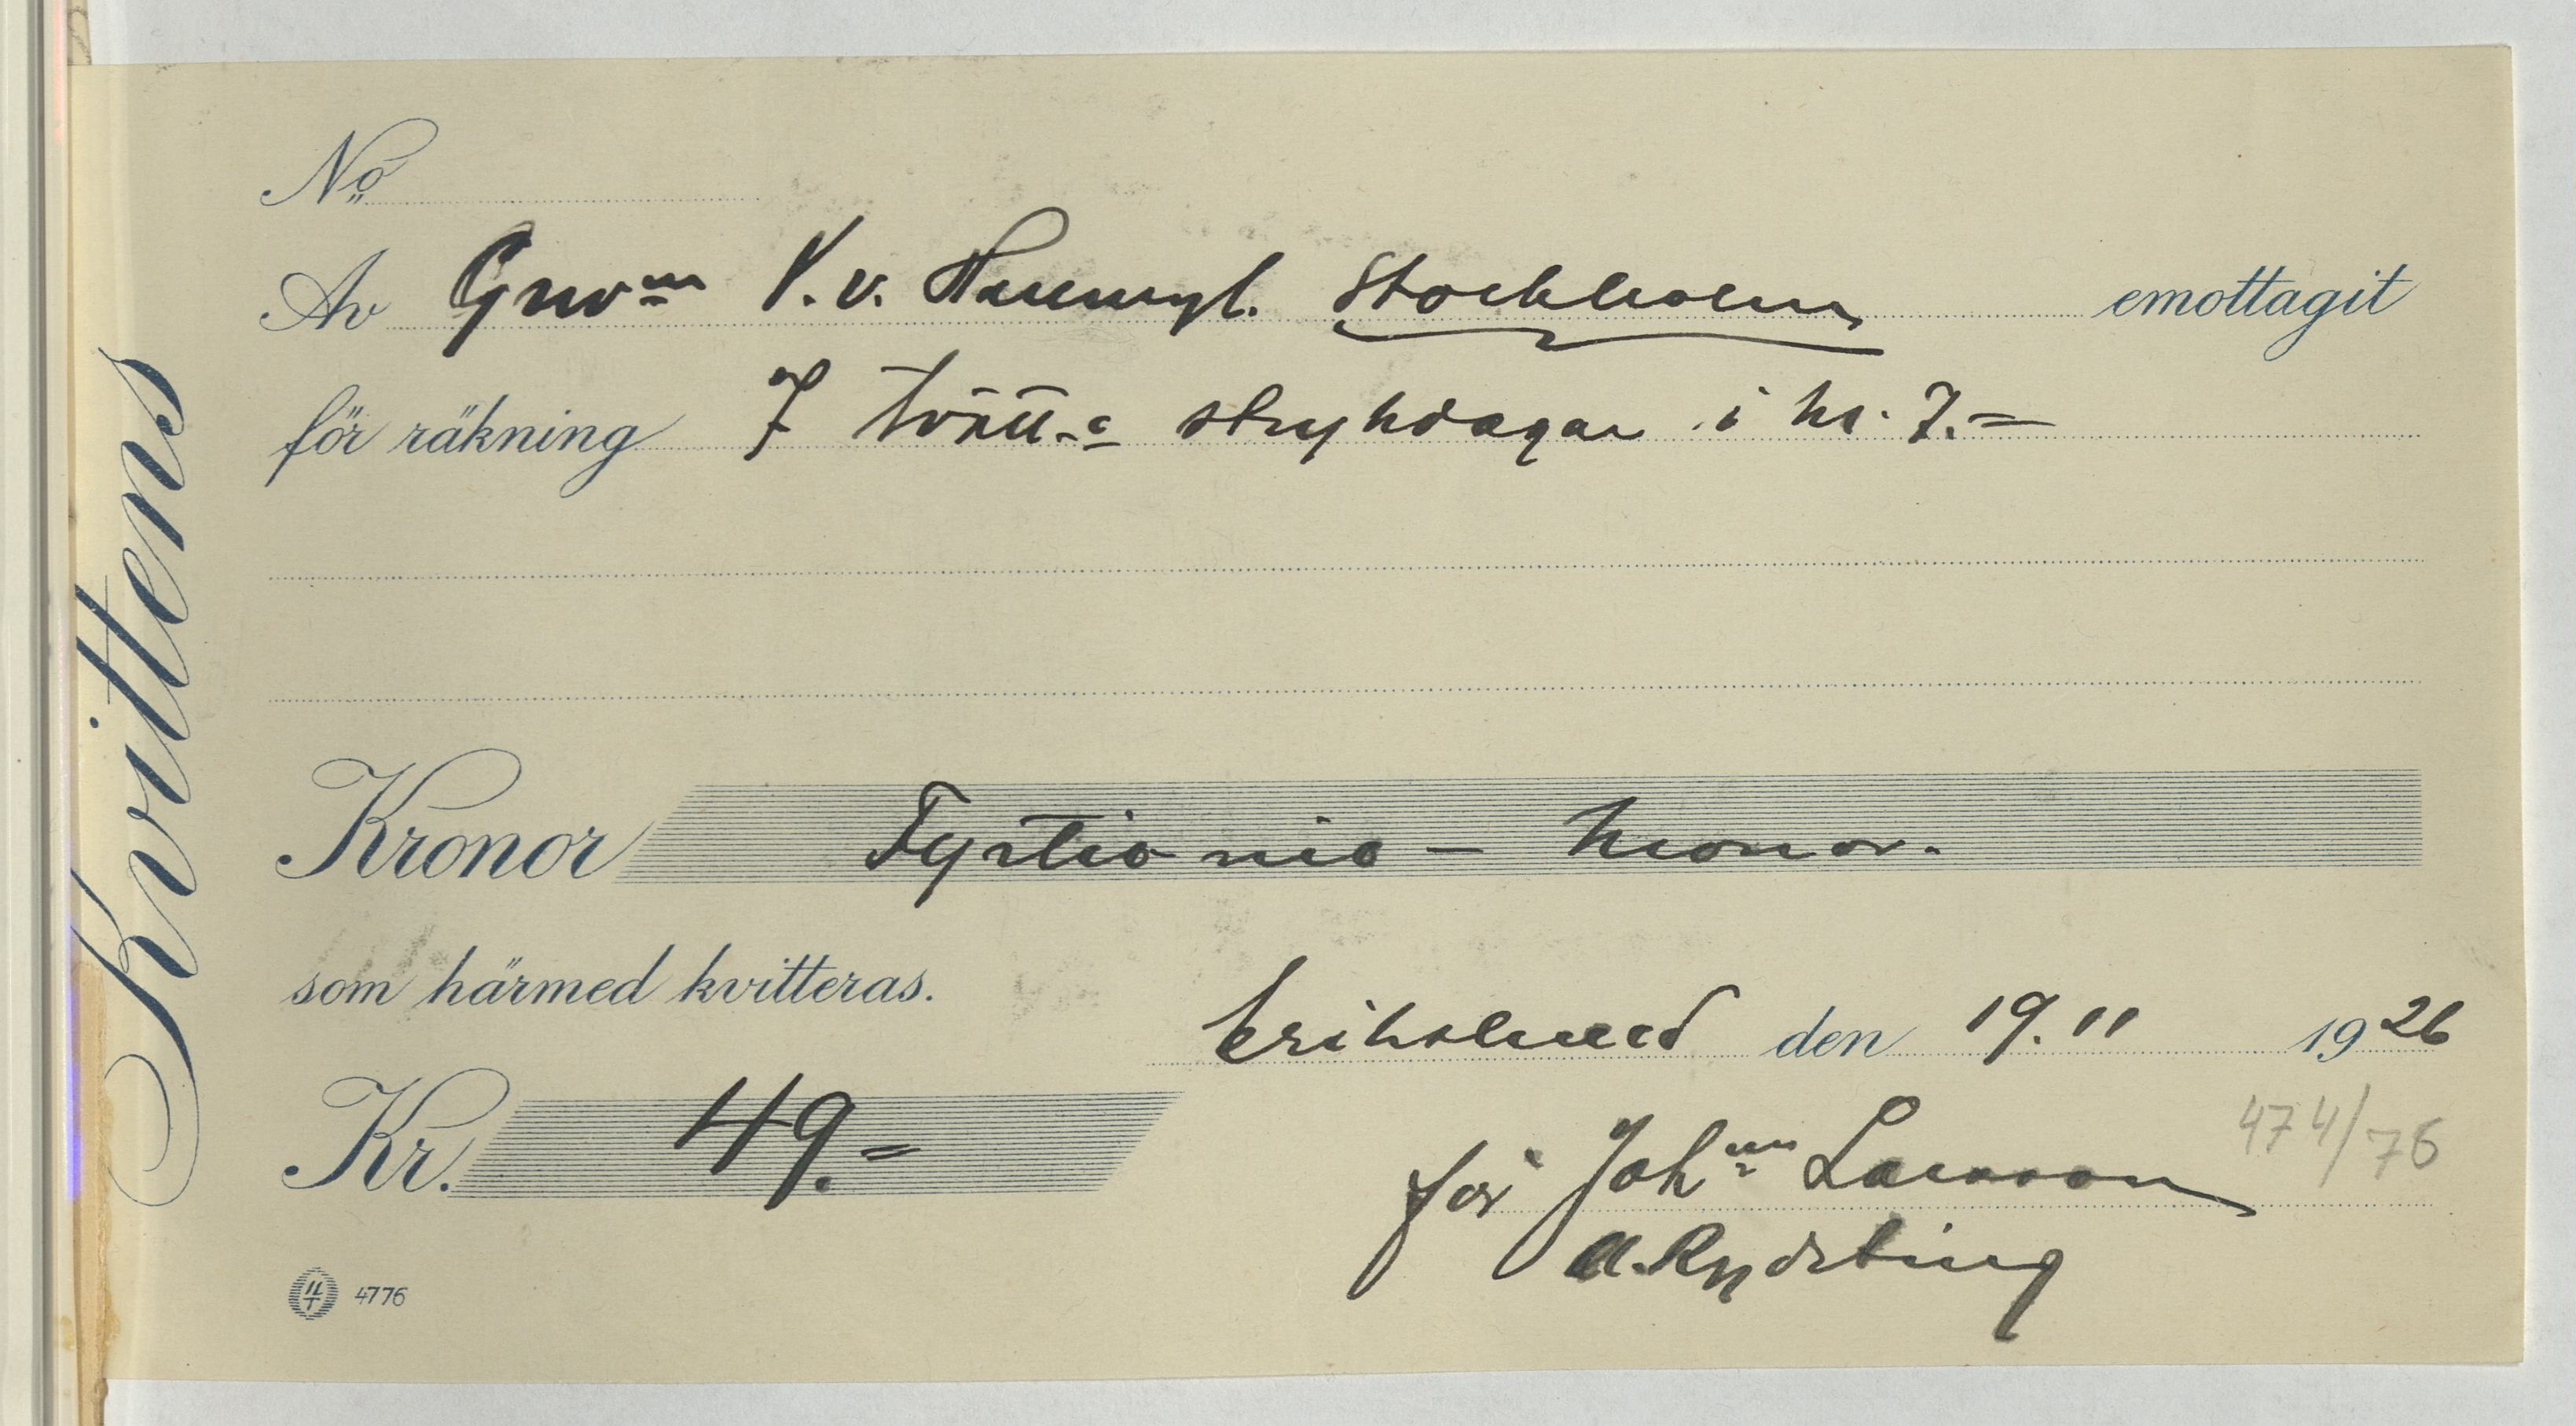 Kvittens
No
Av Grev^nn V. v. Hallwyl. Stockholm emottagit
för räkning 7 tvätt- o strykdagar i kr. 7.=
Kronor Fyrtionio – kronor.
som härmed kvitteras.
Erikslund den 19.11 1926
Kr. 49.=
474/76
för Joh^nn Larsson
A. Rydsting
4776